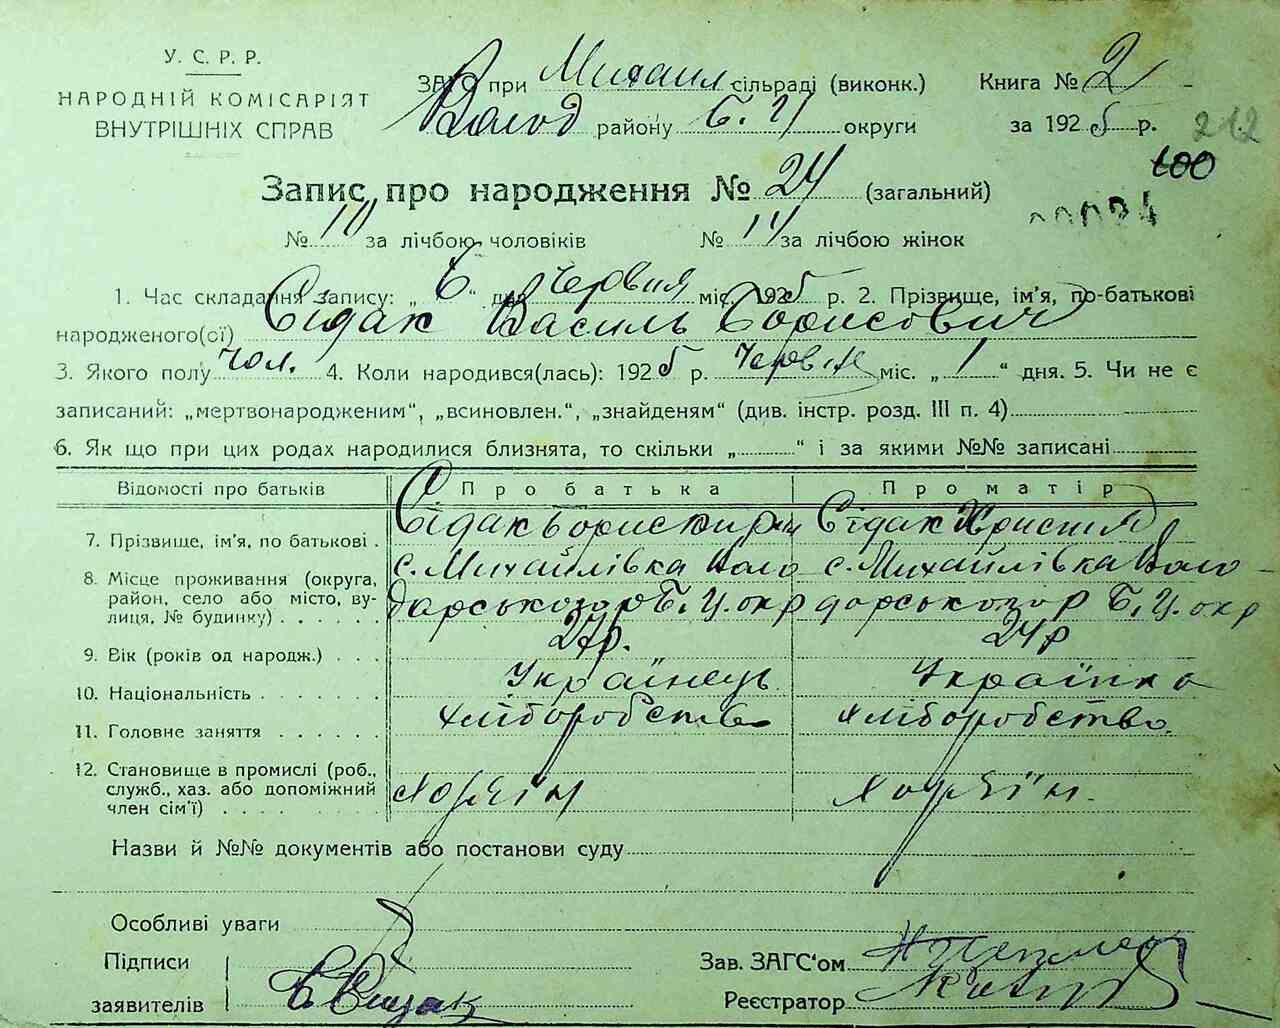 У. С. Р. Р.
НАРОДНІЙ КОМІСАРІЯТ
ВНУТРІШНІХ СПРАВ
ЗАГС при Михайл сільраді (виконк.)
Волод району Б. Ц округи
Книга № 2
за 1925 р.
212
100
Запис про народження № 24 (загальний)
№ 10 за лічбою чоловіків № 14 за лічбою жінок
1. Час складання запису: „ 6 “ дня червня міс. 1925 р. 2. Прізвище, ім'я, по-батькові
народженого(сї) Сідак Василь Борисович
3. Якого полу чол. 4. Коли народився(лась): 1925 р. Червня міс. „ 1 “ дня. 5. Чи не є
записаний: „мертвонародженим“, „всиновлен.“, „знайденям“ (див. інстр. розд. III п. 4)
6. Як що при цих родах народилися близнята, то скільки „ “ і за якими №№ записані
Відомості про батьків Про батька Про матір
7. Прізвище, ім'я, по батькові . Сідак Борис Сідак Христя
8. Місце проживання (округа, с. Михайлівка Воло с. Михайлівка Воло-
район, село або місто, ву- дарського р Б.Ц. окр дарського р Б.Ц. окр
лиця, № будинку) . . . . . .
9. Вік (років од народж.) . . . 27р. 24р
10. Національність . . . . . . . Українець Українка
11. Головне заняття . . . . . . хліборобство хліборобство
12. Становище в промислі (роб.,
служб., хаз. або допоміжний Хазяїн Хазяїн.
член сім'ї) . . . . . . . .
Назви й №№ документів або постанови суду
Особливі уваги
Підписи
заявителів Б Сидак
Зав. ЗАГС'ом
Реєстратор